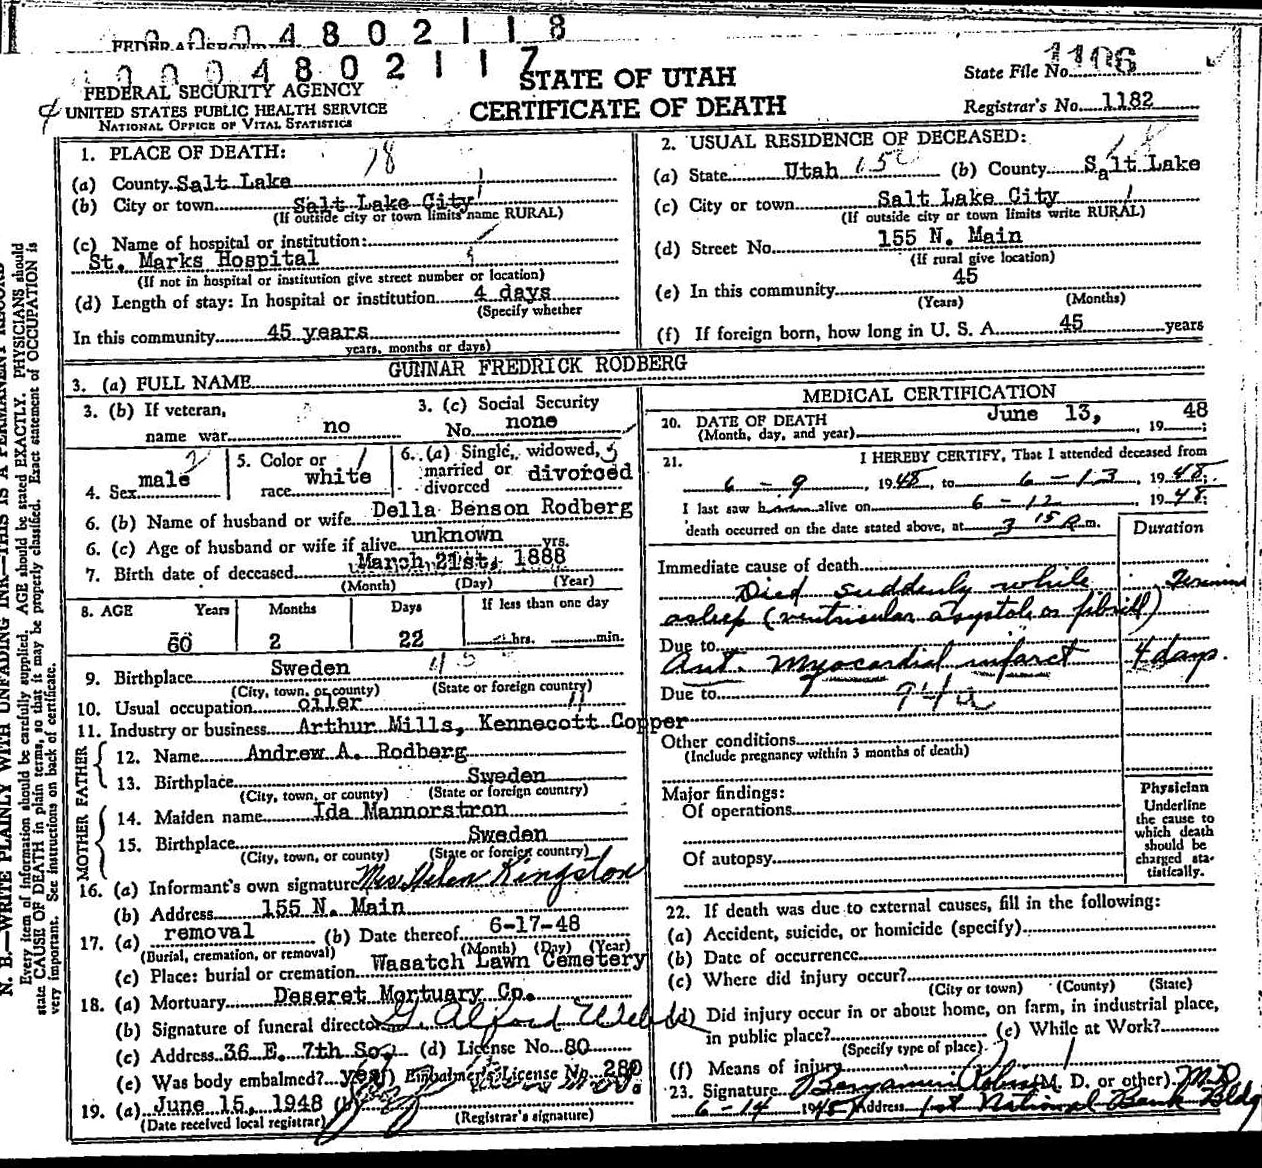 0 0 0 4 8 0 2 1 1 8
0 0 0 4 8 0 2 1 1 7
FEDERAL SECURITY AGENCY
UNITED STATES PUBLIC HEALTH SERVICE
NATIONAL OFFICE OF VITAL STATISTICS
STATE OF UTAH
CERTIFICATE OF DEATH
State File No. 1106
Registrar's No. 1182
N. B.—WRITE PLAINLY WITH UNFADING INK—THIS IS A PERMANENT RECORD
Every item of information should be carefully supplied. AGE should be stated EXACTLY. PHYSICIANS should
state CAUSE OF DEATH in plain terms, so that it may be properly classified. Exact statement of OCCUPATION is
very important. See instructions on back of certificate.
1. PLACE OF DEATH: 18
(a) County Salt Lake
(b) City or town Salt Lake City
(If outside city or town limits name RURAL)
(c) Name of hospital or institution:
St. Marks Hospital
(If not in hospital or institution give street number or location)
(d) Length of stay: In hospital or institution 4 days
(Specify whether
In this community 45 years
years, months or days)
2. USUAL RESIDENCE OF DECEASED: 18
(a) State Utah (b) County Salt Lake
(c) City or town Salt Lake City
(If outside city or town limits write RURAL)
(d) Street No. 155 N. Main
(If rural give location)
(e) In this community 45
(Years) (Months)
(f) If foreign born, how long in U. S. A. 45 years
3. (a) FULL NAME GUNNAR FREDRICK RODBERG
3. (b) If veteran,
name war no
3. (c) Social Security
No. none
4. Sex male
5. Color or
race white
6. (a) Single, widowed,
married or
divorced divorced
6. (b) Name of husband or wife Della Benson Rodberg
6. (c) Age of husband or wife if alive unknown yrs.
7. Birth date of deceased March 21st, 1888
(Month) (Day) (Year)
8. AGE Years Months Days If less than one day
60 2 22 hrs. min.
9. Birthplace Sweden
(City, town, or county) (State or foreign country)
10. Usual occupation oiler
11. Industry or business Arthur Mills, Kennecott Copper
FATHER
12. Name Andrew A. Rodberg
13. Birthplace Sweden
(City, town, or county) (State or foreign country)
MOTHER
14. Maiden name Ida Mannorstron
15. Birthplace Sweden
(City, town, or county) (State or foreign country)
16. (a) Informant's own signature Mrs Helen Kingston
(b) Address 155 N. Main
17. (a) removal (b) Date thereof 6-17-48
(Burial, cremation, or removal) (Month) (Day) (Year)
(c) Place: burial or cremation Wasatch Lawn Cemetery
18. (a) Mortuary Deseret Mortuary Co.
(b) Signature of funeral director G. Alford Webb
(c) Address 36 E. 7th So. (d) License No. 80
(e) Was body embalmed? yes (f) Embalmer's License No. 280
19. (a) June 15, 1948 (b)
(Date received local registrar) (Registrar's signature)
MEDICAL CERTIFICATION
20. DATE OF DEATH June 13, 1948;
(Month, day, and year)
21. I HEREBY CERTIFY, That I attended deceased from
6 - 9, 1948, to 6 - 13, 1948;
I last saw him alive on 6 - 12 1948;
death occurred on the date stated above, at 3 15 m.
Duration
Immediate cause of death
Died suddenly while
asleep (ventricular asystole or fibrill)
Due to
Ant. Myocardial infarct 4 days.
Due to 94a
Other conditions
(Include pregnancy within 3 months of death)
Major findings:
Of operations
Of autopsy
Physician
Underline
the cause to
which death
should be
charged sta-
tistically.
22. If death was due to external causes, fill in the following:
(a) Accident, suicide, or homicide (specify)
(b) Date of occurrence
(c) Where did injury occur?
(City or town) (County) (State)
(d) Did injury occur in or about home, on farm, in industrial place,
in public place? (e) While at Work?
(Specify type of place)
(f) Means of injury
23. Signature Benjamin (M. D. or other) M.D.
6 - 14 Address 1st National Bank Bldg